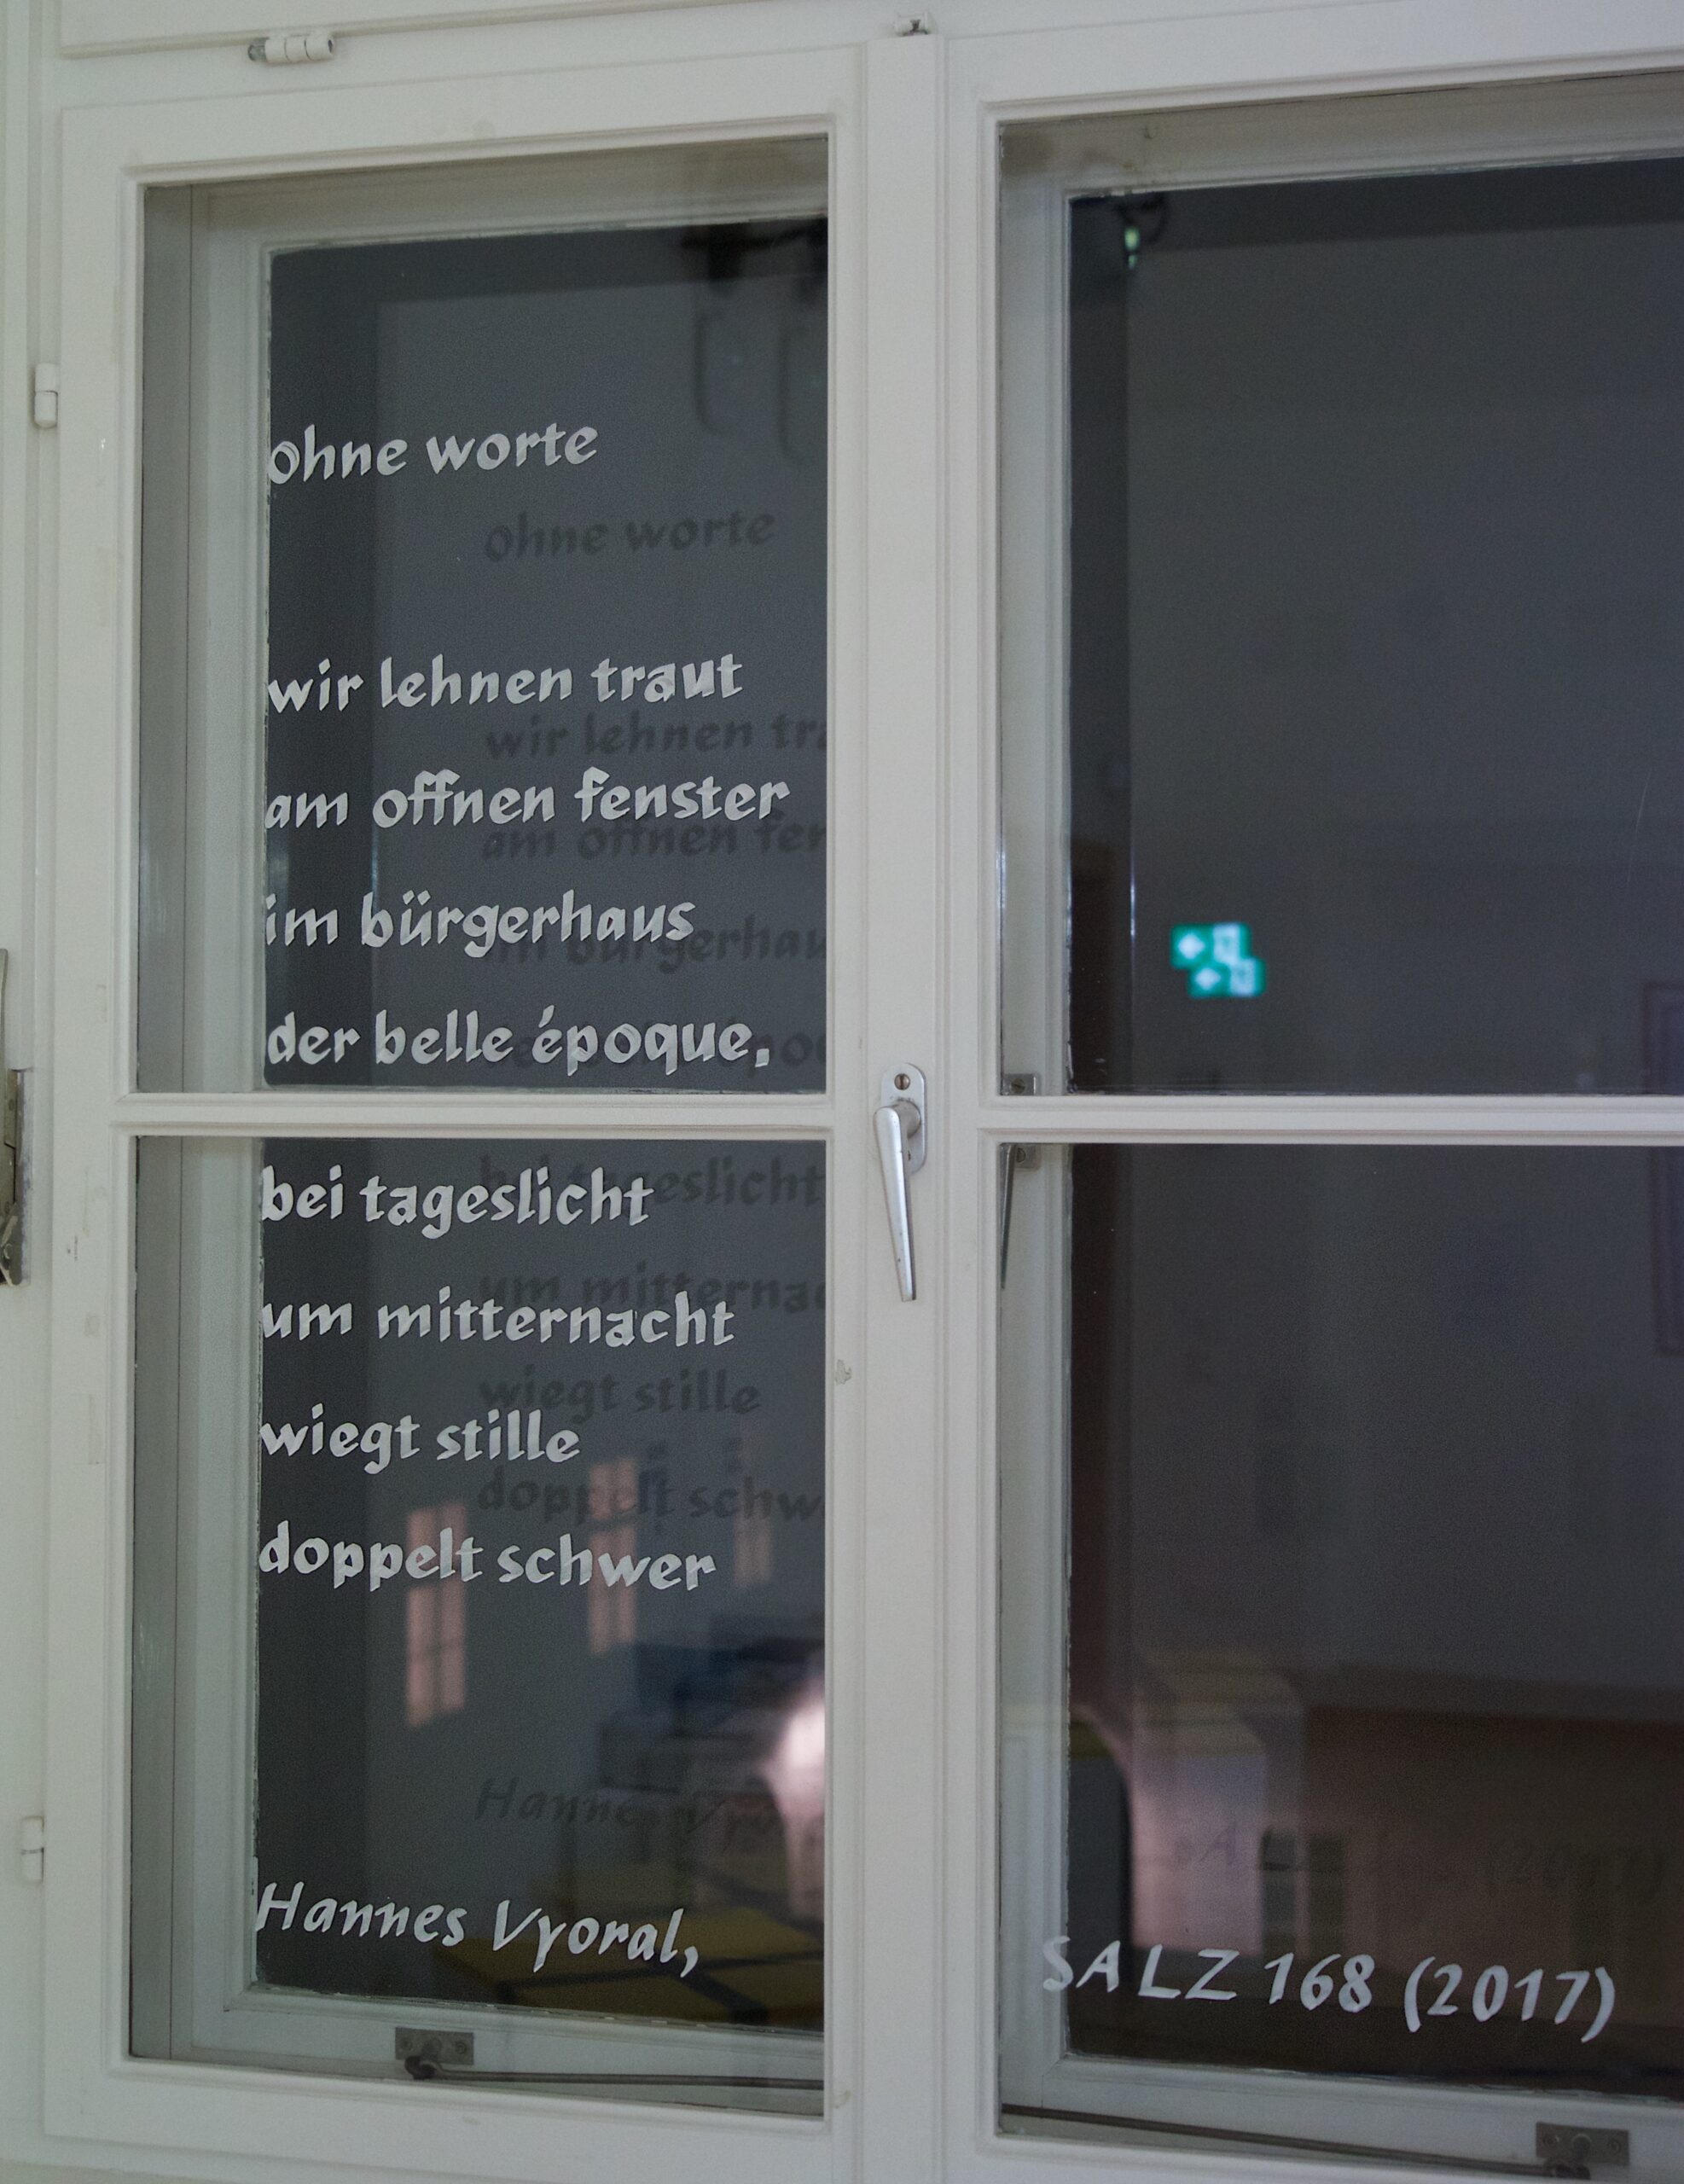 ohne worte
wir lehnen traut
am offnen fenster
im bürgerhaus
der belle époque,
bei tageslicht
um mitternacht
wiegt stille
doppelt schwer
Hannes Vyoral,
SALZ 168 (2017)